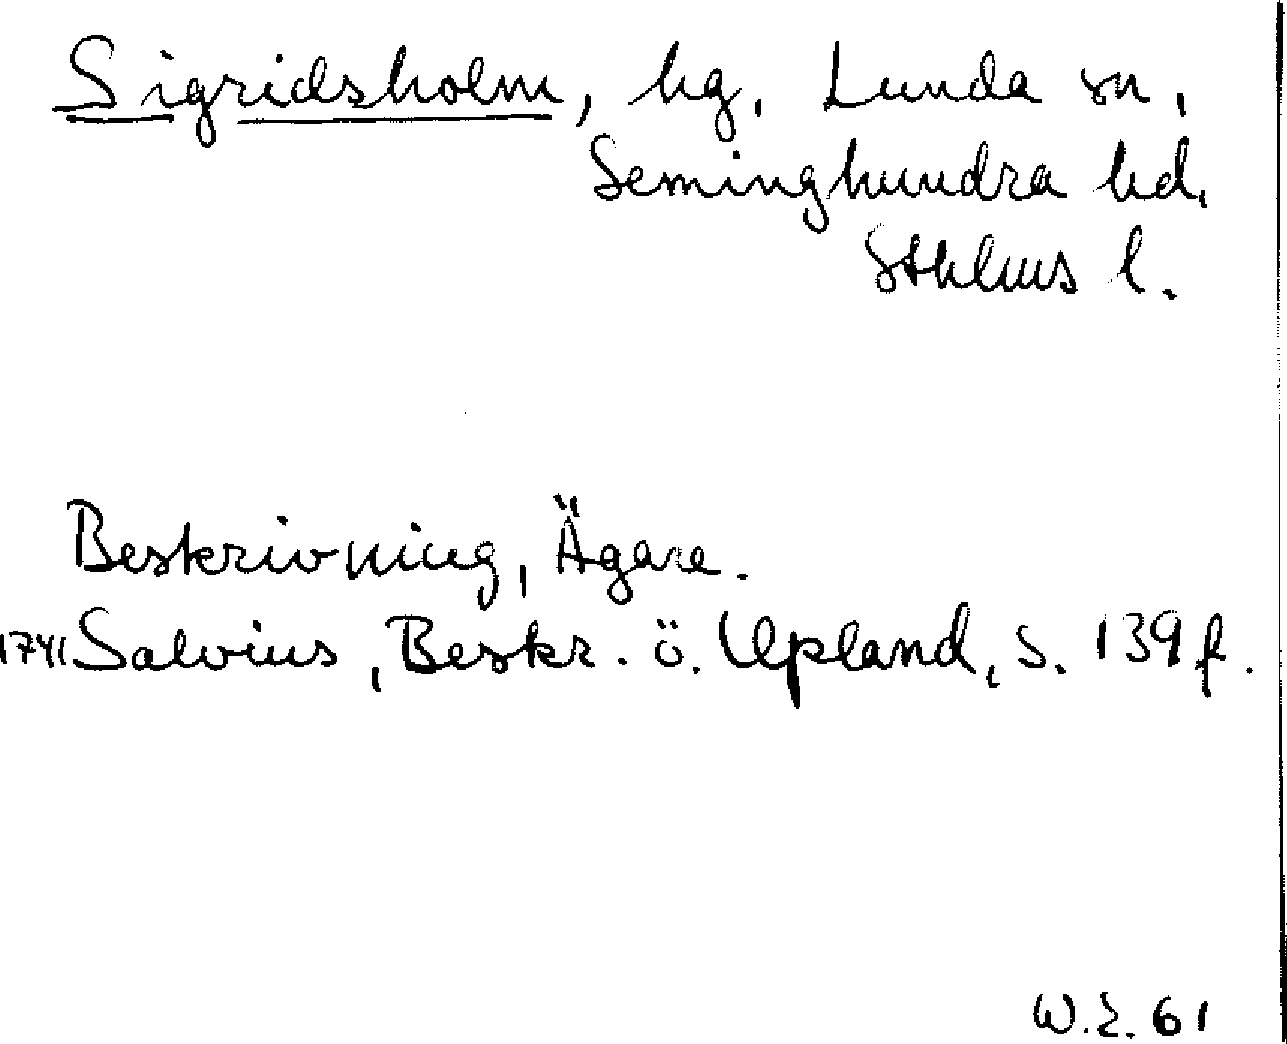 Sigridsholm, hg. Lunda sn,
Seminghundra hd.
Sthlms l.
Beskrivning, Ägare.
1741 Salvius, Beskr. ö. Upland, s. 139 f.
W.E. 61